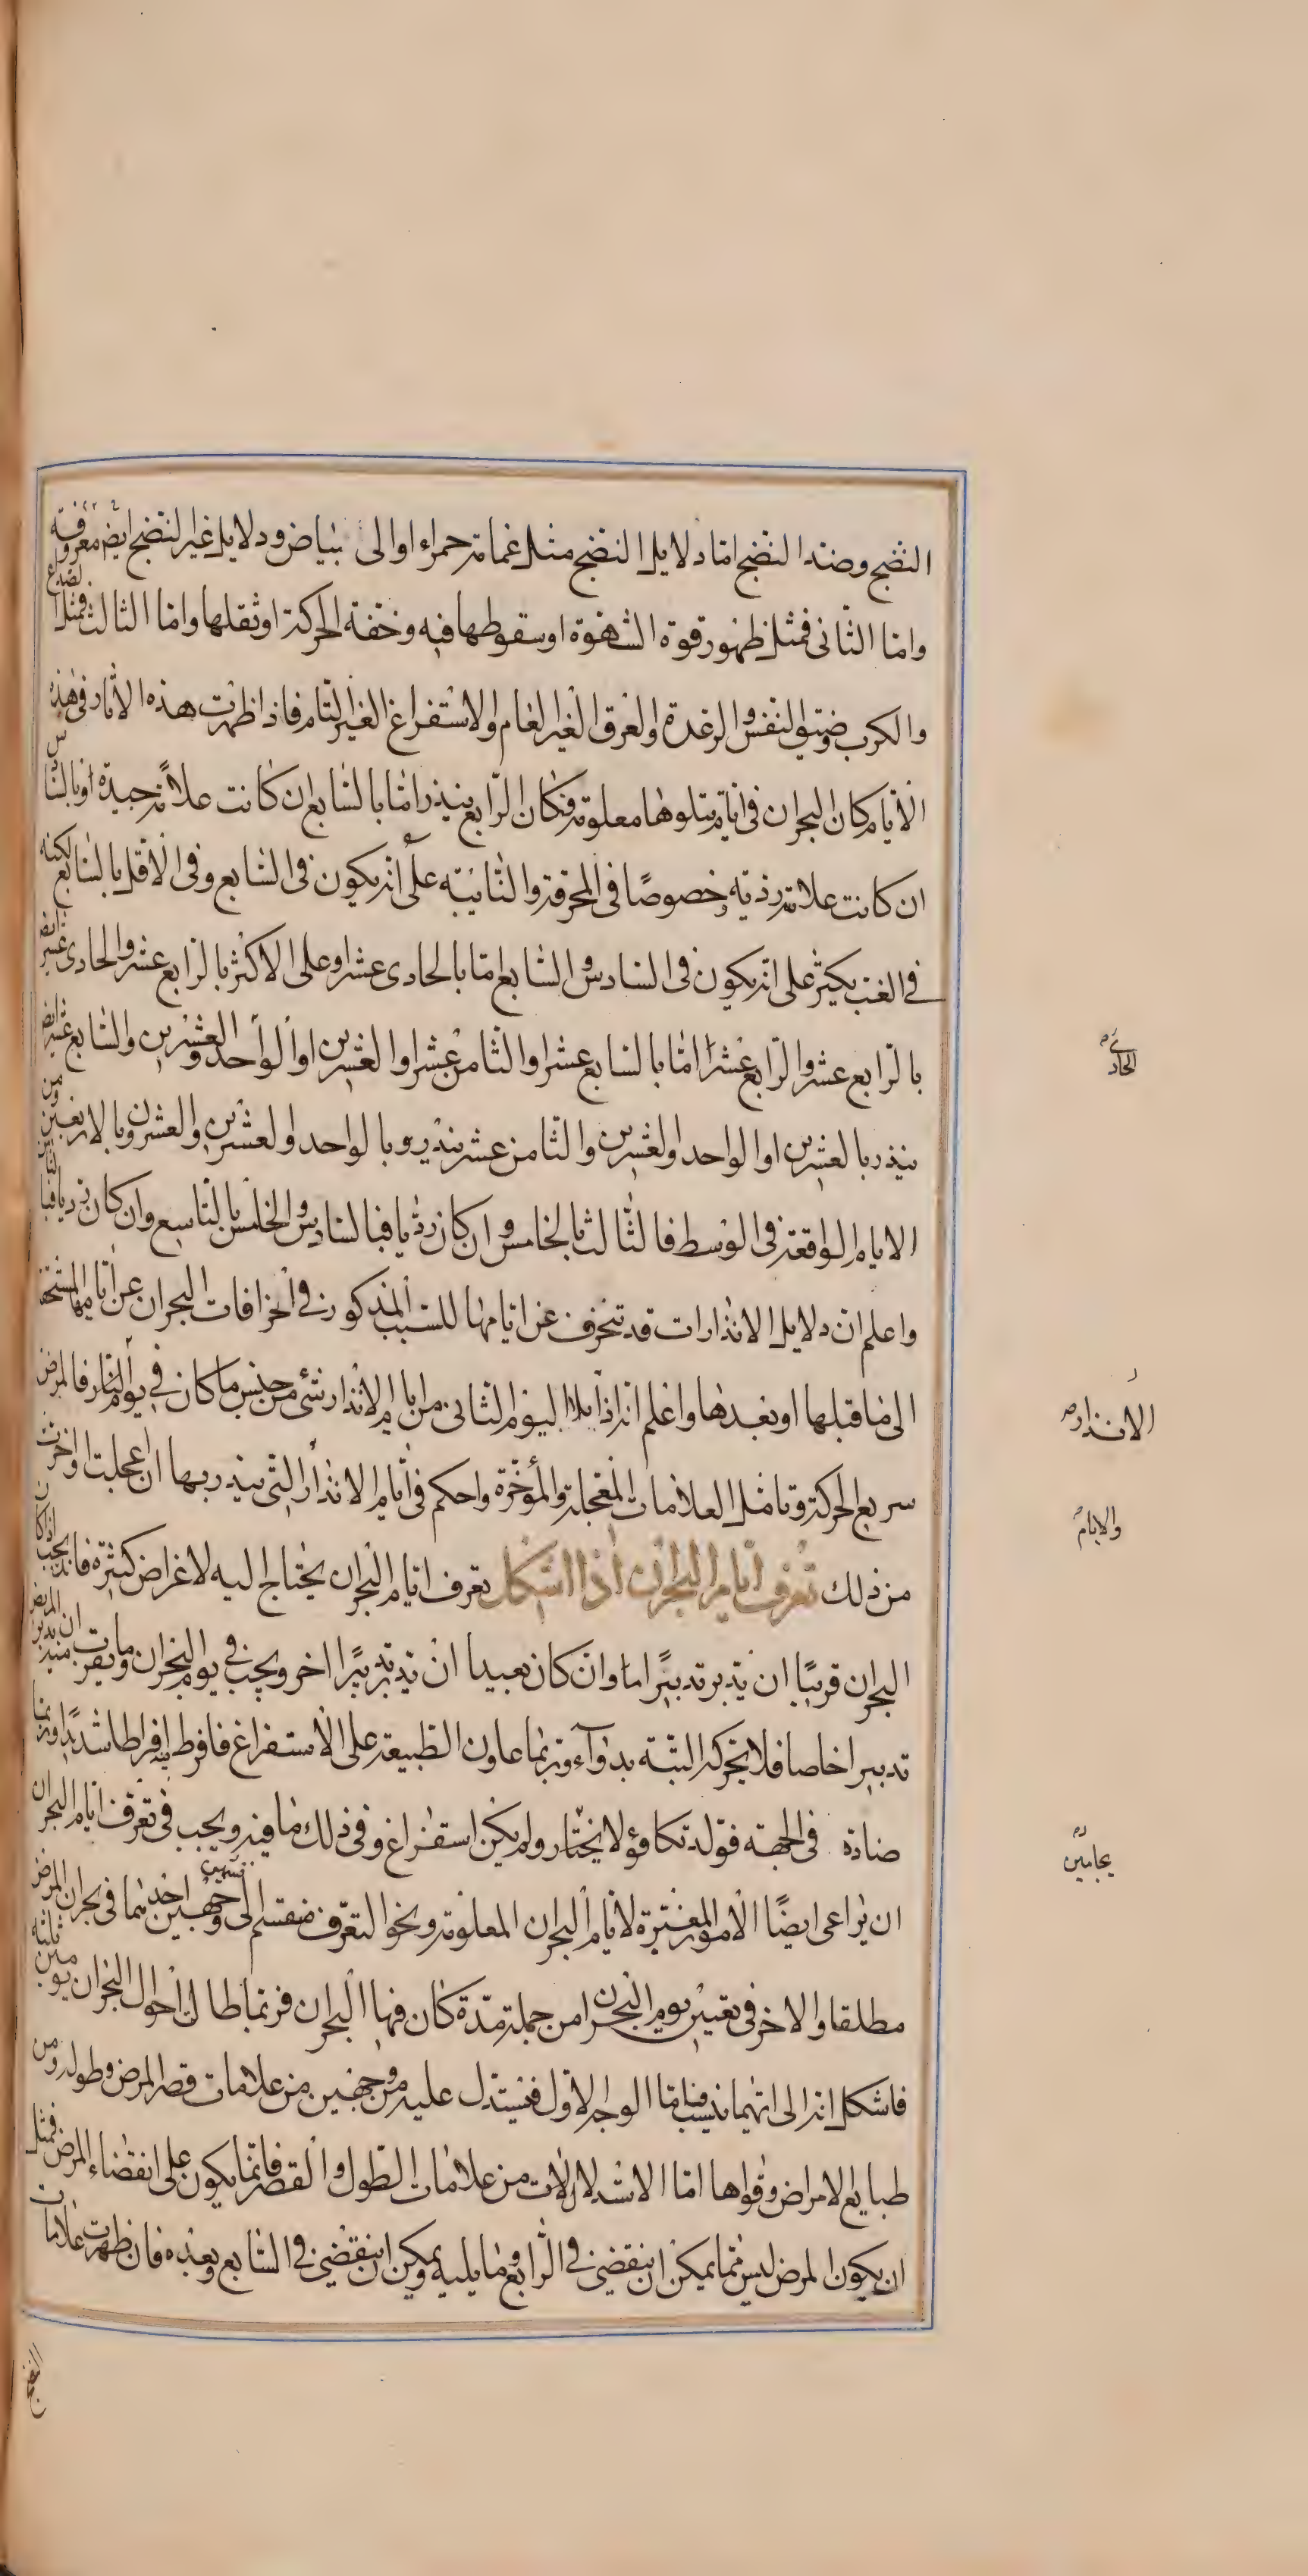 النضج وضد النضج اما دلايل النضج مثل غمامة حمراء او الى بياض ودلايل غير النضج ايضا معروفة
واما الثانى فمثل ظهور قوة الشهوة او سقوطها فيه وخفة الحركة او ثقلها واما الثالث فمثل الصداع
والكرب وضيق النفس والرعدة والعرق الغير العام والاستفراغ الغير التام فاذا ظهرت هذه الاثار فى هذه
الايام كان البحران فى ايام يتلوها معلومة فكان الرابع ينذر اما بالسابع ان كانت علامة جيدة او بالسادس
ان كانت علامة رذية وخصوصا فى المحرقة والنايبه على انه يكون فى السابع وفى الاقل بالسابع لكنه
فى الغب يكثر على انه يكون فى السادس والسابع اما بالحادى عشر او على الاكثر بالرابع عشر والحادى عشر ايض
بالرابع عشر والرابع عشر اما بالسابع عشر او الثامن عشر او العشرين او الواحد والعشرين والسابع عشر ايض
ينذر بالعشرين او الواحد والعشرين والثامن عشر ينذر بالواحد والعشرين والعشرون بالاربعين ومن
الايام الواقعة فى الوسط فالثالث بالخامس وان كان رديا فبالسادس والخامس بالتاسع وان كان رديا فبالثامن
واعلم ان دلايل الانذارات قد تنحرف عن ايامها للسبب المذكور فى انحرافات البحران عن ايامها المستحقة
الى ما قبلها او بعدها واعلم انه اذا تلا اليوم الثانى من ايام الانذار شئ من جنس ما كان فى يوم الانذار فالمرض
سريع الحركة وتامل العلامات المعجلة والمؤخرة واحكم فى ايام الانذار التى ينذر بها ان عجلت او اخرت
من ذلك تعرف ايام البحران اذا اشكل تعرف ايام البحران يحتاج اليه لاغراض كثيرة فانه يجب اذا كان
البحران قريبا ان يدبر تدبيرا ما وان كان بعيدا ان يدبر تدبيرا اخر ويجب فى يوم البحران وما يقرب منه ان يدبر المريض
تدبيرا خاصا فلا يحركه البتة بدواء وربما عاون الطبيعة على الاستفراغ فافرط به افراطا شديدا وربما
ضادة فى الجهة فتولد تكافؤ لا يختار ولم يكن استفراغ وفى ذلك ما فيه ويجب فى تعرف ايام البحران
ان يراعى ايضا الامور المغيرة لايام البحران المعلومة ونحو التعرف منقسم الى وجهين احدهما فى بحران المرض
مطلقا والاخر فى تعيين يوم البحران من جملة مدة كان فيها البحران فربما طالت احوال البحران يومين ثلثه
فاشكل انه الى ايهما ينسب فاما الوجه الاول فيستدل عليه من وجهين من علامات قصر المرض وطوله ومن
طبايع الامراض وقواها اما الاستدلالات من علامات الطول والقصر فانما يكون على انقضاء المرض فمثل
ان يكون المرض ليس مما يمكن ان ينقضى فى الرابع وما يليه ويمكن ان ينقضى فى السابع وبعده فان ظهرت علامات
النضج
الحادى
الانذار
والايام